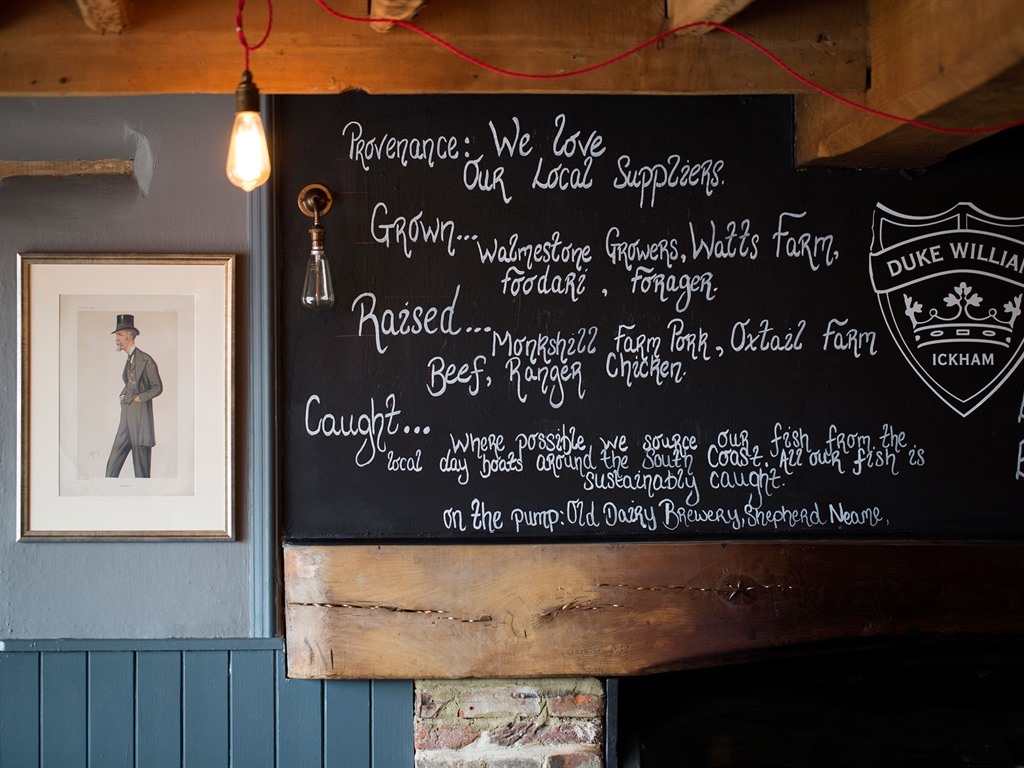 Provenance: We love
Our Local Suppliers.
Grown... Walmestone Growers, Watts Farm,
Foodari, Forager.
Raised... Monkshill Farm Pork, Oxtail Farm
Beef, Ranger Chicken.
Caught... Where possible, we source our fish from the
local day boats around the South Coast. All our fish is
sustainably caught.
on the pump: Old Dairy Brewery, Shepherd Neame,
DUKE WILLIA
ICKHAM